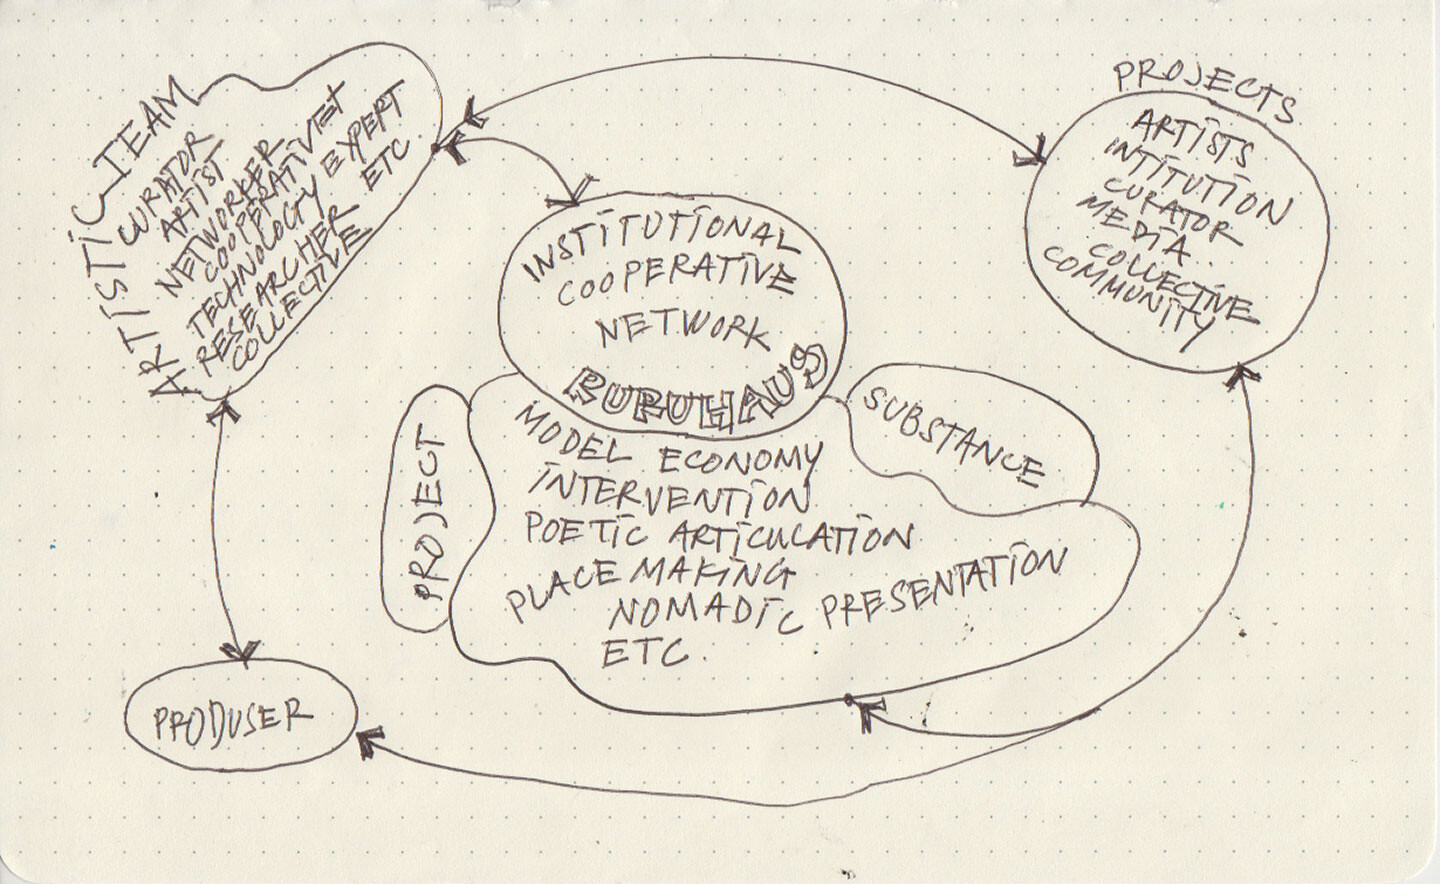 ARTISTIC TEAM
CURATOR
ARTIST
NETWORKER
COOPERATIVIST
TECHNOLOGY EXPERT
RESEARCHER
COLLECTIVE
ETC
PROJECTS
ARTISTS
INTITUTION
CURATOR
MEDIA.
COLLECTIVE
COMMUNITY
INSTITUTIONAL
COOPERATIVE
NETWORK
RURUHAUS
PROJECT
SUBSTANCE
MODEL ECONOMY
INTERVENTION
POETIC ARTICULATION
PLACE MAKING
NOMADIC PRESENTATION
ETC.
PRODUSER